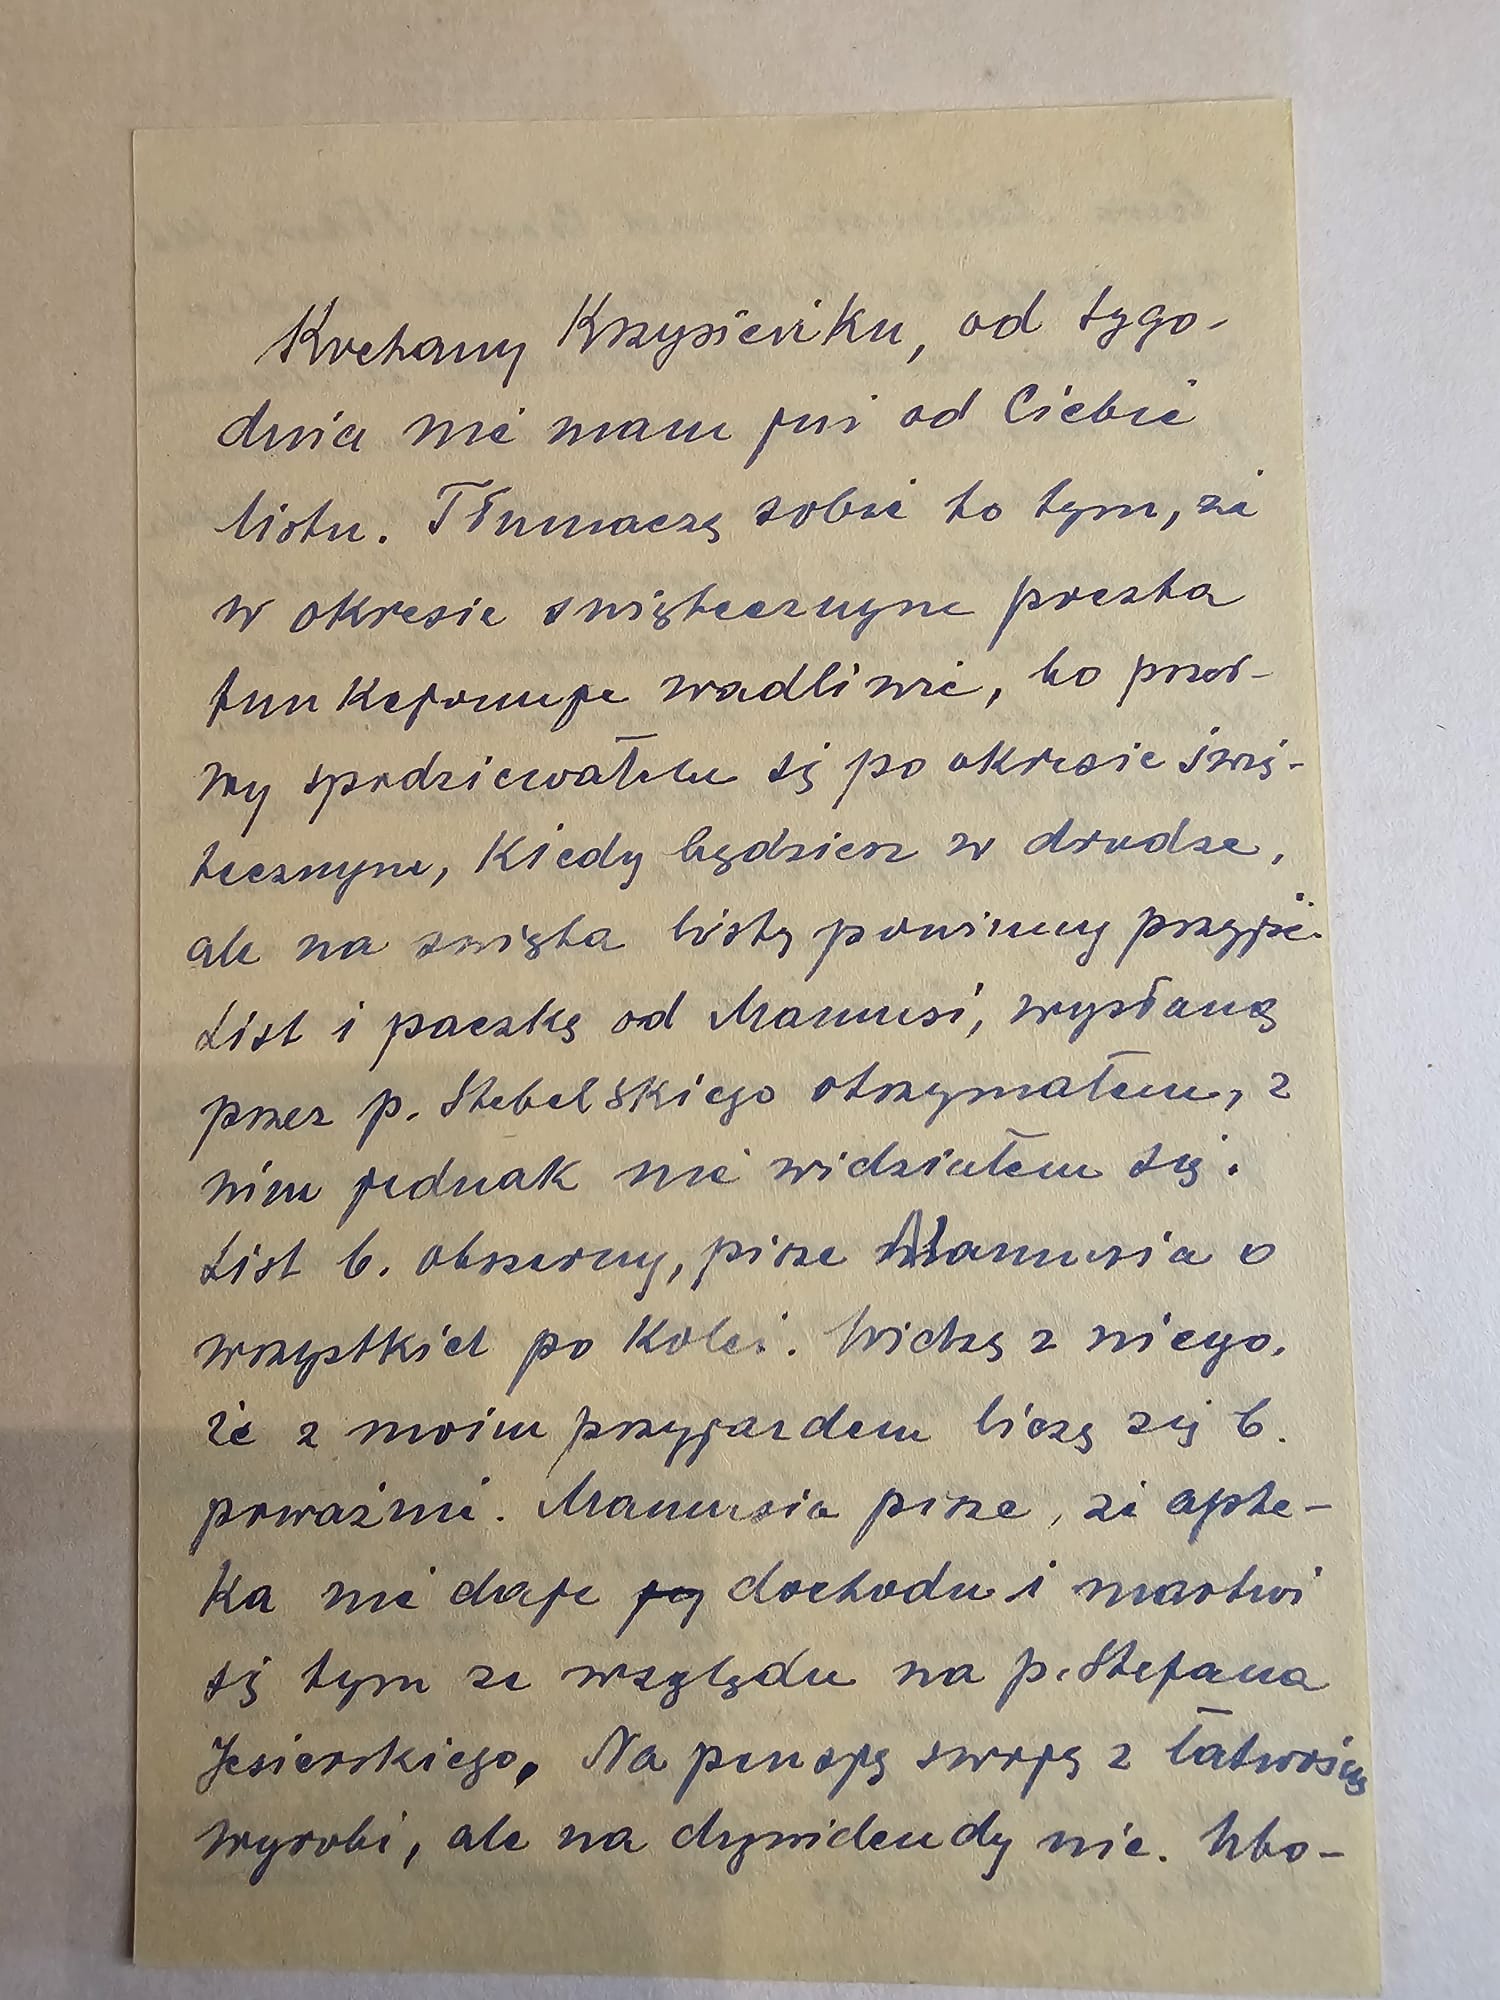 Kochany Krzysieńku, od tygo-
dnia nie mam już od Ciebie
listu. Tłumaczę sobie to tym, że
w okresie świątecznym poczta
funkcjonuje wadliwie, bo przer-
wy spodziewałem się po okresie świą-
tecznym, kiedy będziesz w drodze,
ale na święta listy powinny przyjść.
List i paczkę od Mamusi, wysłaną
przez p. Stebelskiego otrzymałem, z
nim jednak nie widziałem się.
List b. obszerny, pisze Mamusia o
wszystkich po kolei. Widzę z niego,
że z moim przyjazdem liczą się b.
poważnie. Mamusia pisze, że apte-
ka nie daje dochodu i martwi
się tym ze względu na p. Stefana
Jezierskiego. Na pensję swoją z łatwością
wyrobi, ale na dywidendy nie. Ubo-